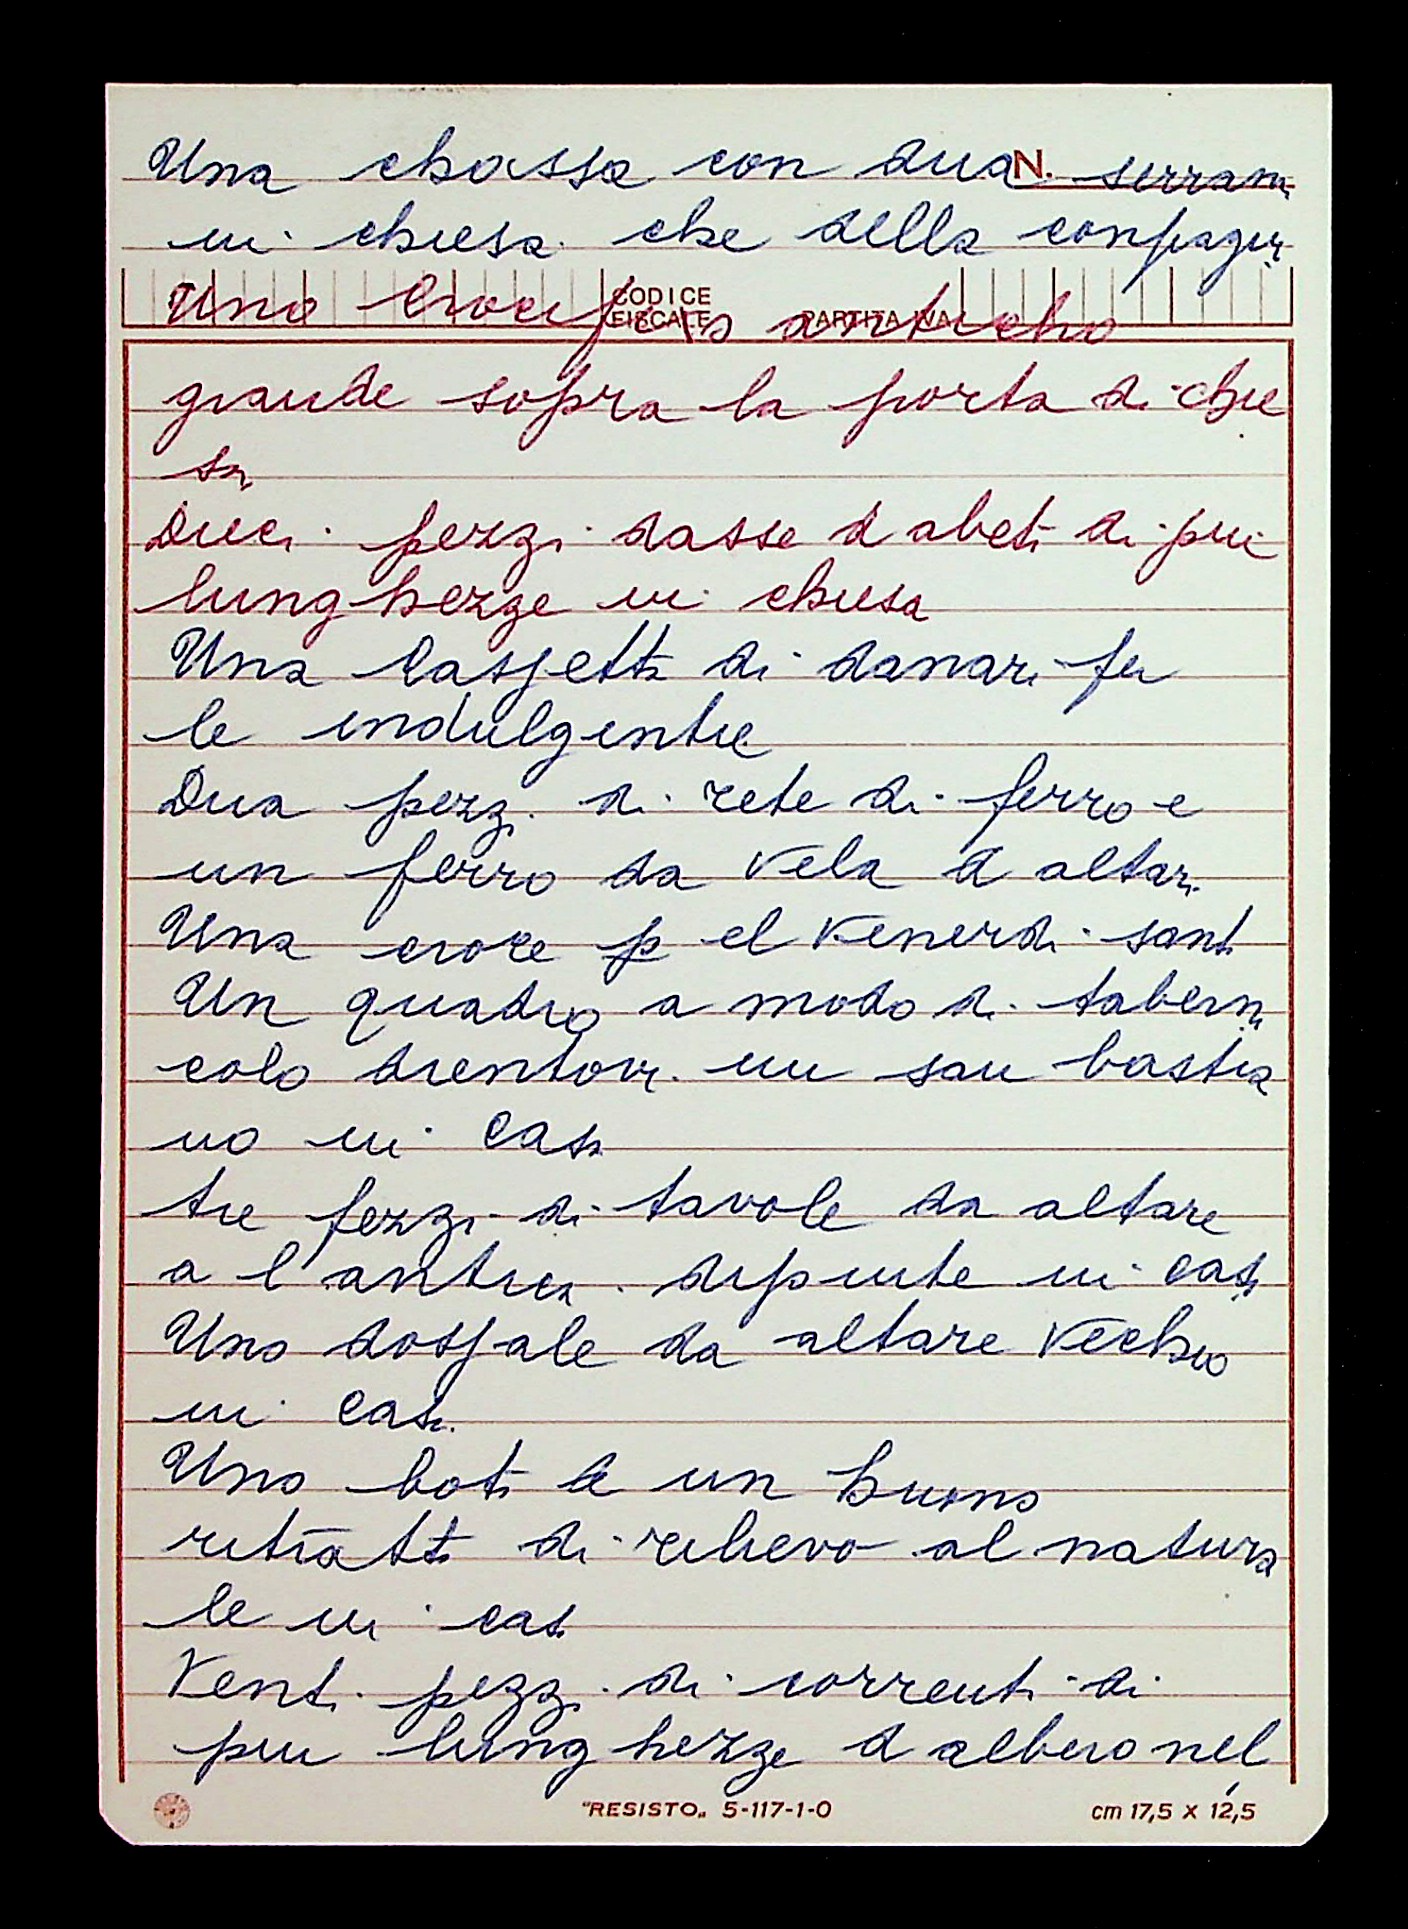 Una chassa con dua N. serrami
in chiesa che della conpagni
Uno Crocifisso anticho
CODICE FISCALE PARTITA IVA
grande sopra la porta di chie
sa
Dieci pezzi dasse d abeti di piu
lunghezze in chiesa
Una Cassetta di danari per
le indulgentie
Dua pezzi di rete di ferro e
un ferro da vela d altari
Una croce p el Venerdi santo
Un quadro a modo di taberna
colo drentovi un san bastia
no in casa
tre pezzi di tavole da altare
a l'antica dipinte in casa
Uno dossale da altare Vechio
in casa
Uno boto de un huomo
ritratto di rilievo al natura
le in casa
Venti pezzi di correnti di
piu lunghezze d albero nel
"RESISTO„ 5-117-1-0 cm 17,5 x 12,5